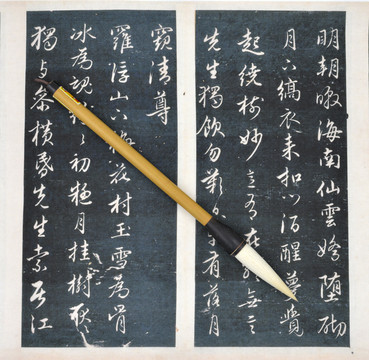 明朝暾海南仙雲嬌堕砌
月下縞衣来扣門酒醒夢覺
起繞樹妙意有在終無言
先生獨飲勿歎有落月
窺清尊
羅浮山下梅花村玉雪為骨
冰為魂紛々初疑月挂樹耿々
獨与參橫昏先生索居江